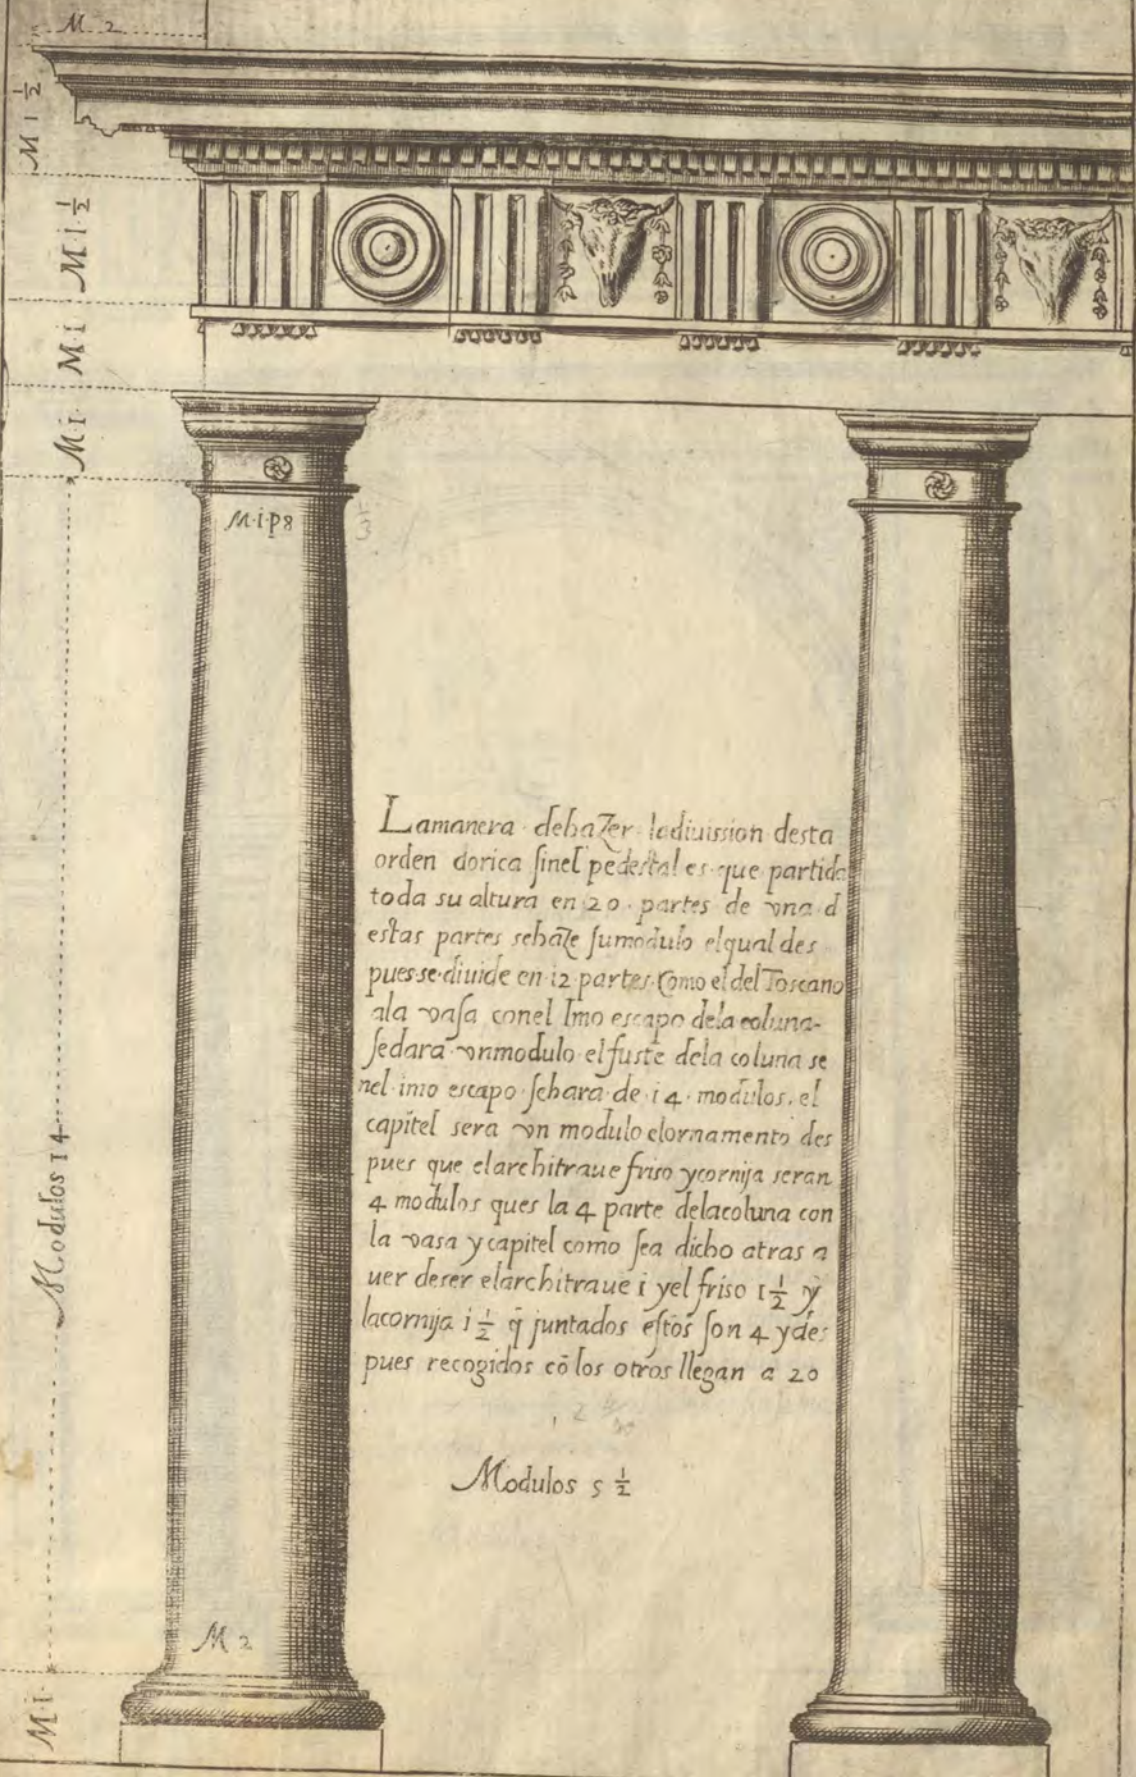 M 2
M 1 1/2
M·i· 1/2
M·i
M·i·
M·i·p8
1/3
Modulos 14
Lamanera dehazer ladiuission desta
orden dorica sinel pedestal es que partida
toda su altura en 20 partes de vna d
estas partes sehaze sumodulo elqual des
pues se diuide en 12 partes Como el del Toscano
ala vasa conel Imo escapo dela coluna-
sedara vnmodulo el fuste dela coluna se
nel imo escapo sehara de 14 modulos. el
capitel sera vn modulo elornamento des
pues que elarchitraue friso ycornija seran
4 modulos ques la 4 parte delacoluna con
la vasa y capitel como sea dicho atras a
uer deser elarchitraue i yel friso 1 1/2 y
lacornija i 1/2 q̃ juntados estos son 4 y des
pues recogidos cõ los otros llegan a 20
Modulos 5 1/2
M 2
M·i·